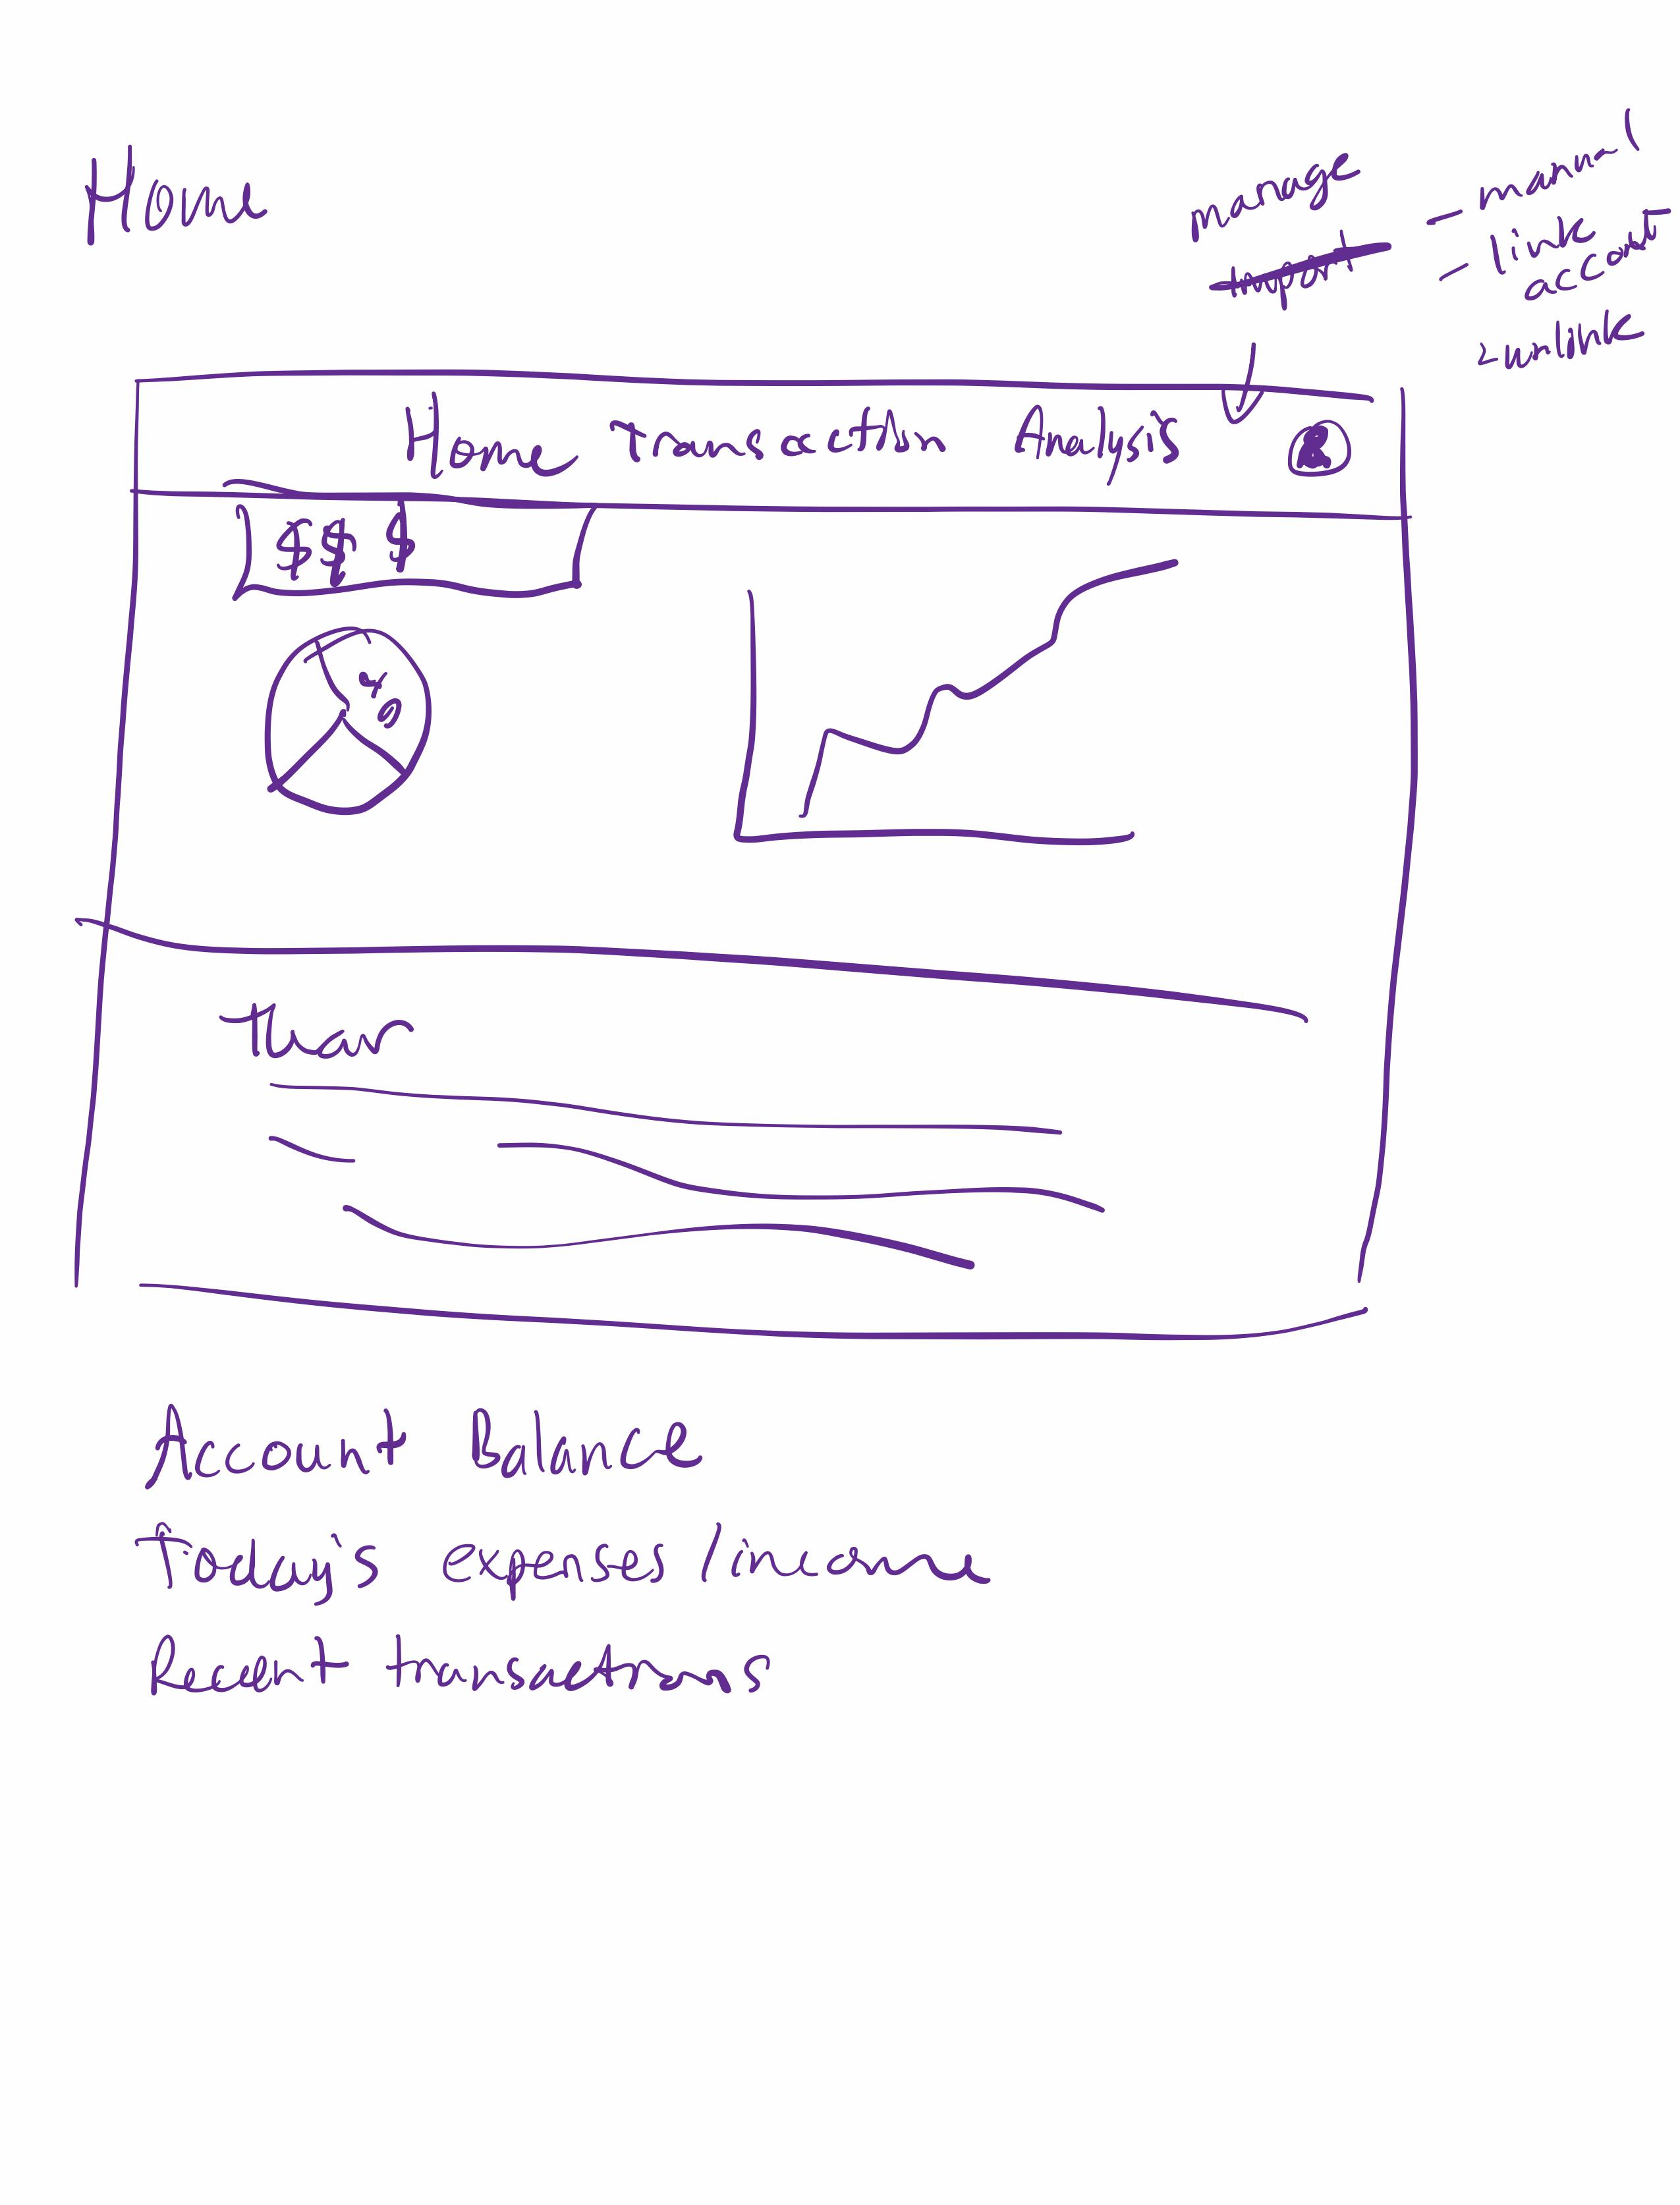 Home
manage
Import
- manual
- link
account
- unlink
Home Transaction Analysis
$ $ $
%
Account Balance
Today's expenses / income
Recent transactions